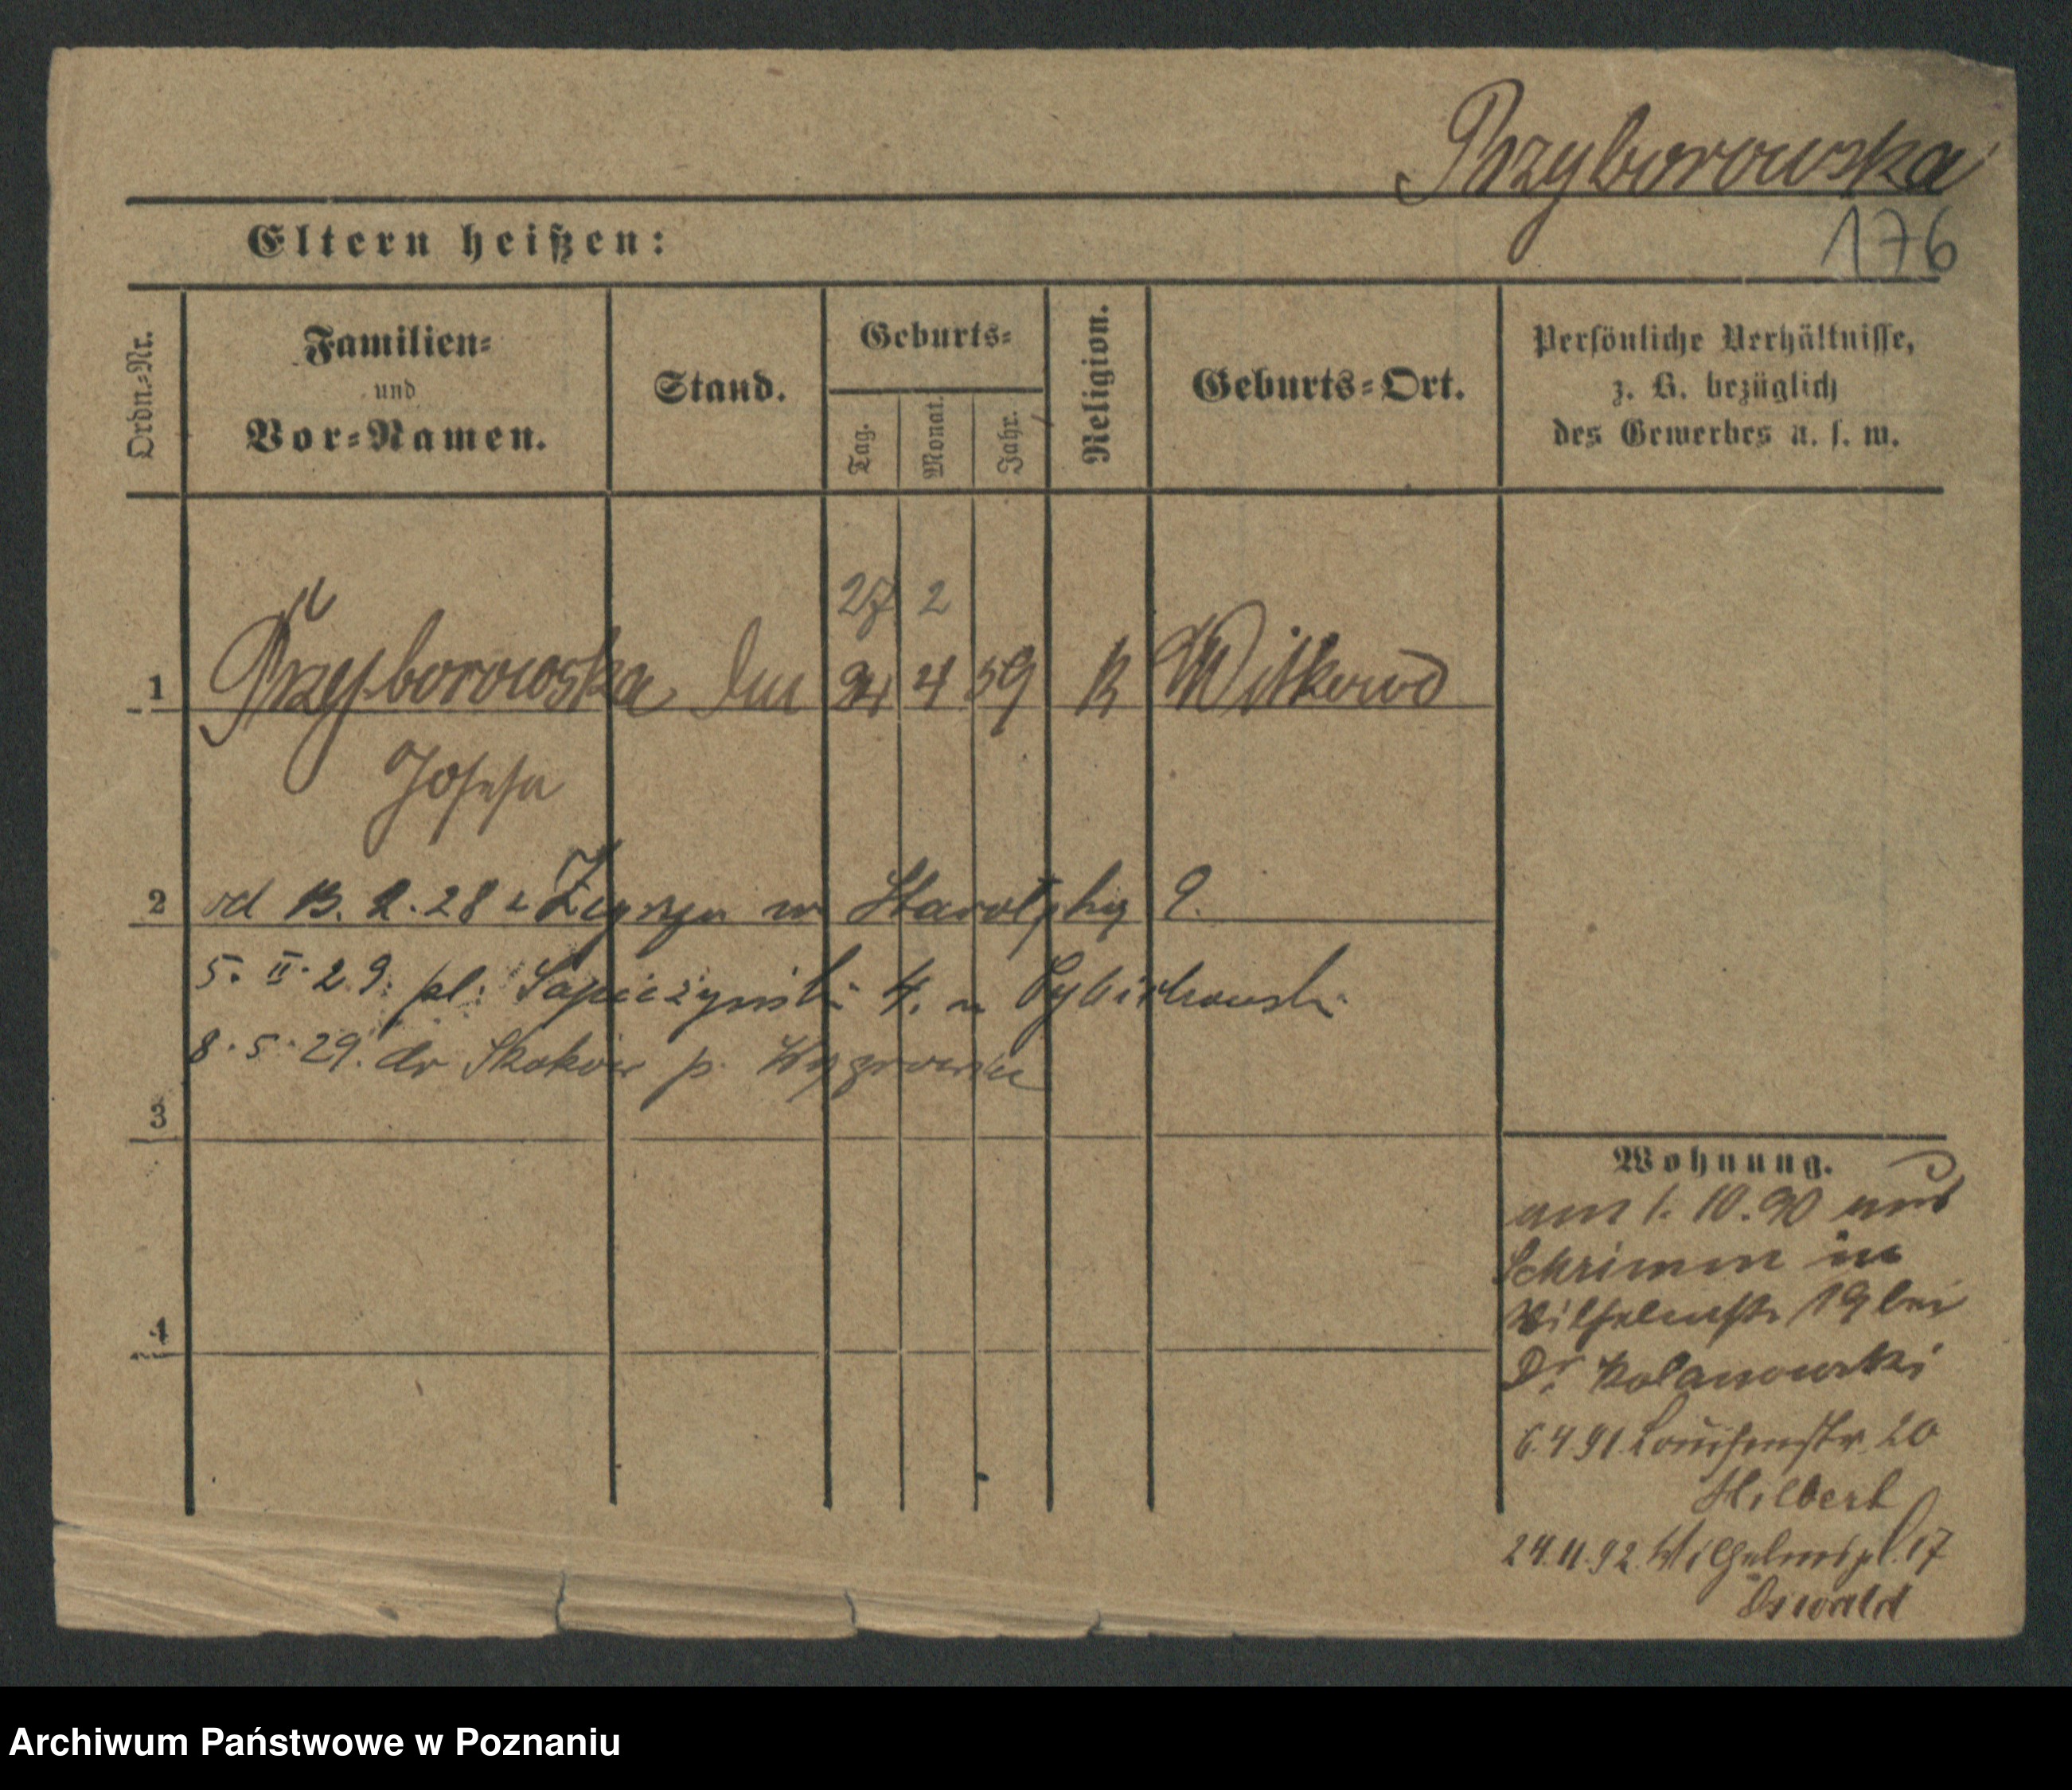 Przyborowska
176
Eltern heißen:
Ordn.-Nr.
Familien-
und
Vor-Namen.
Stand.
Geburts-
Tag.
Monat.
Jahr.
Religion.
Geburts-Ort.
Persönliche Verhältnisse,
z. B. bezüglich
des Gewerbes u. s. w.
27 2
1 Przyborowska 4 59 K Witkowo
Josefa
2 od 13. 2. 28 w 9.
5. II. 29. pl. Sapieżyński 4.
8. 5. 29. do Skoków p. Wągrowiec
3
4
Wohnung.
am 1. 10. 90 aus
Schrimm in
Wilhelmstr 19 bei
Dr. Kolanowski
6.4 91 Louisenstr. 20
Hilbert
24.11.92. Wilhelmspl. 17
Oswald
Archiwum Państwowe w Poznaniu